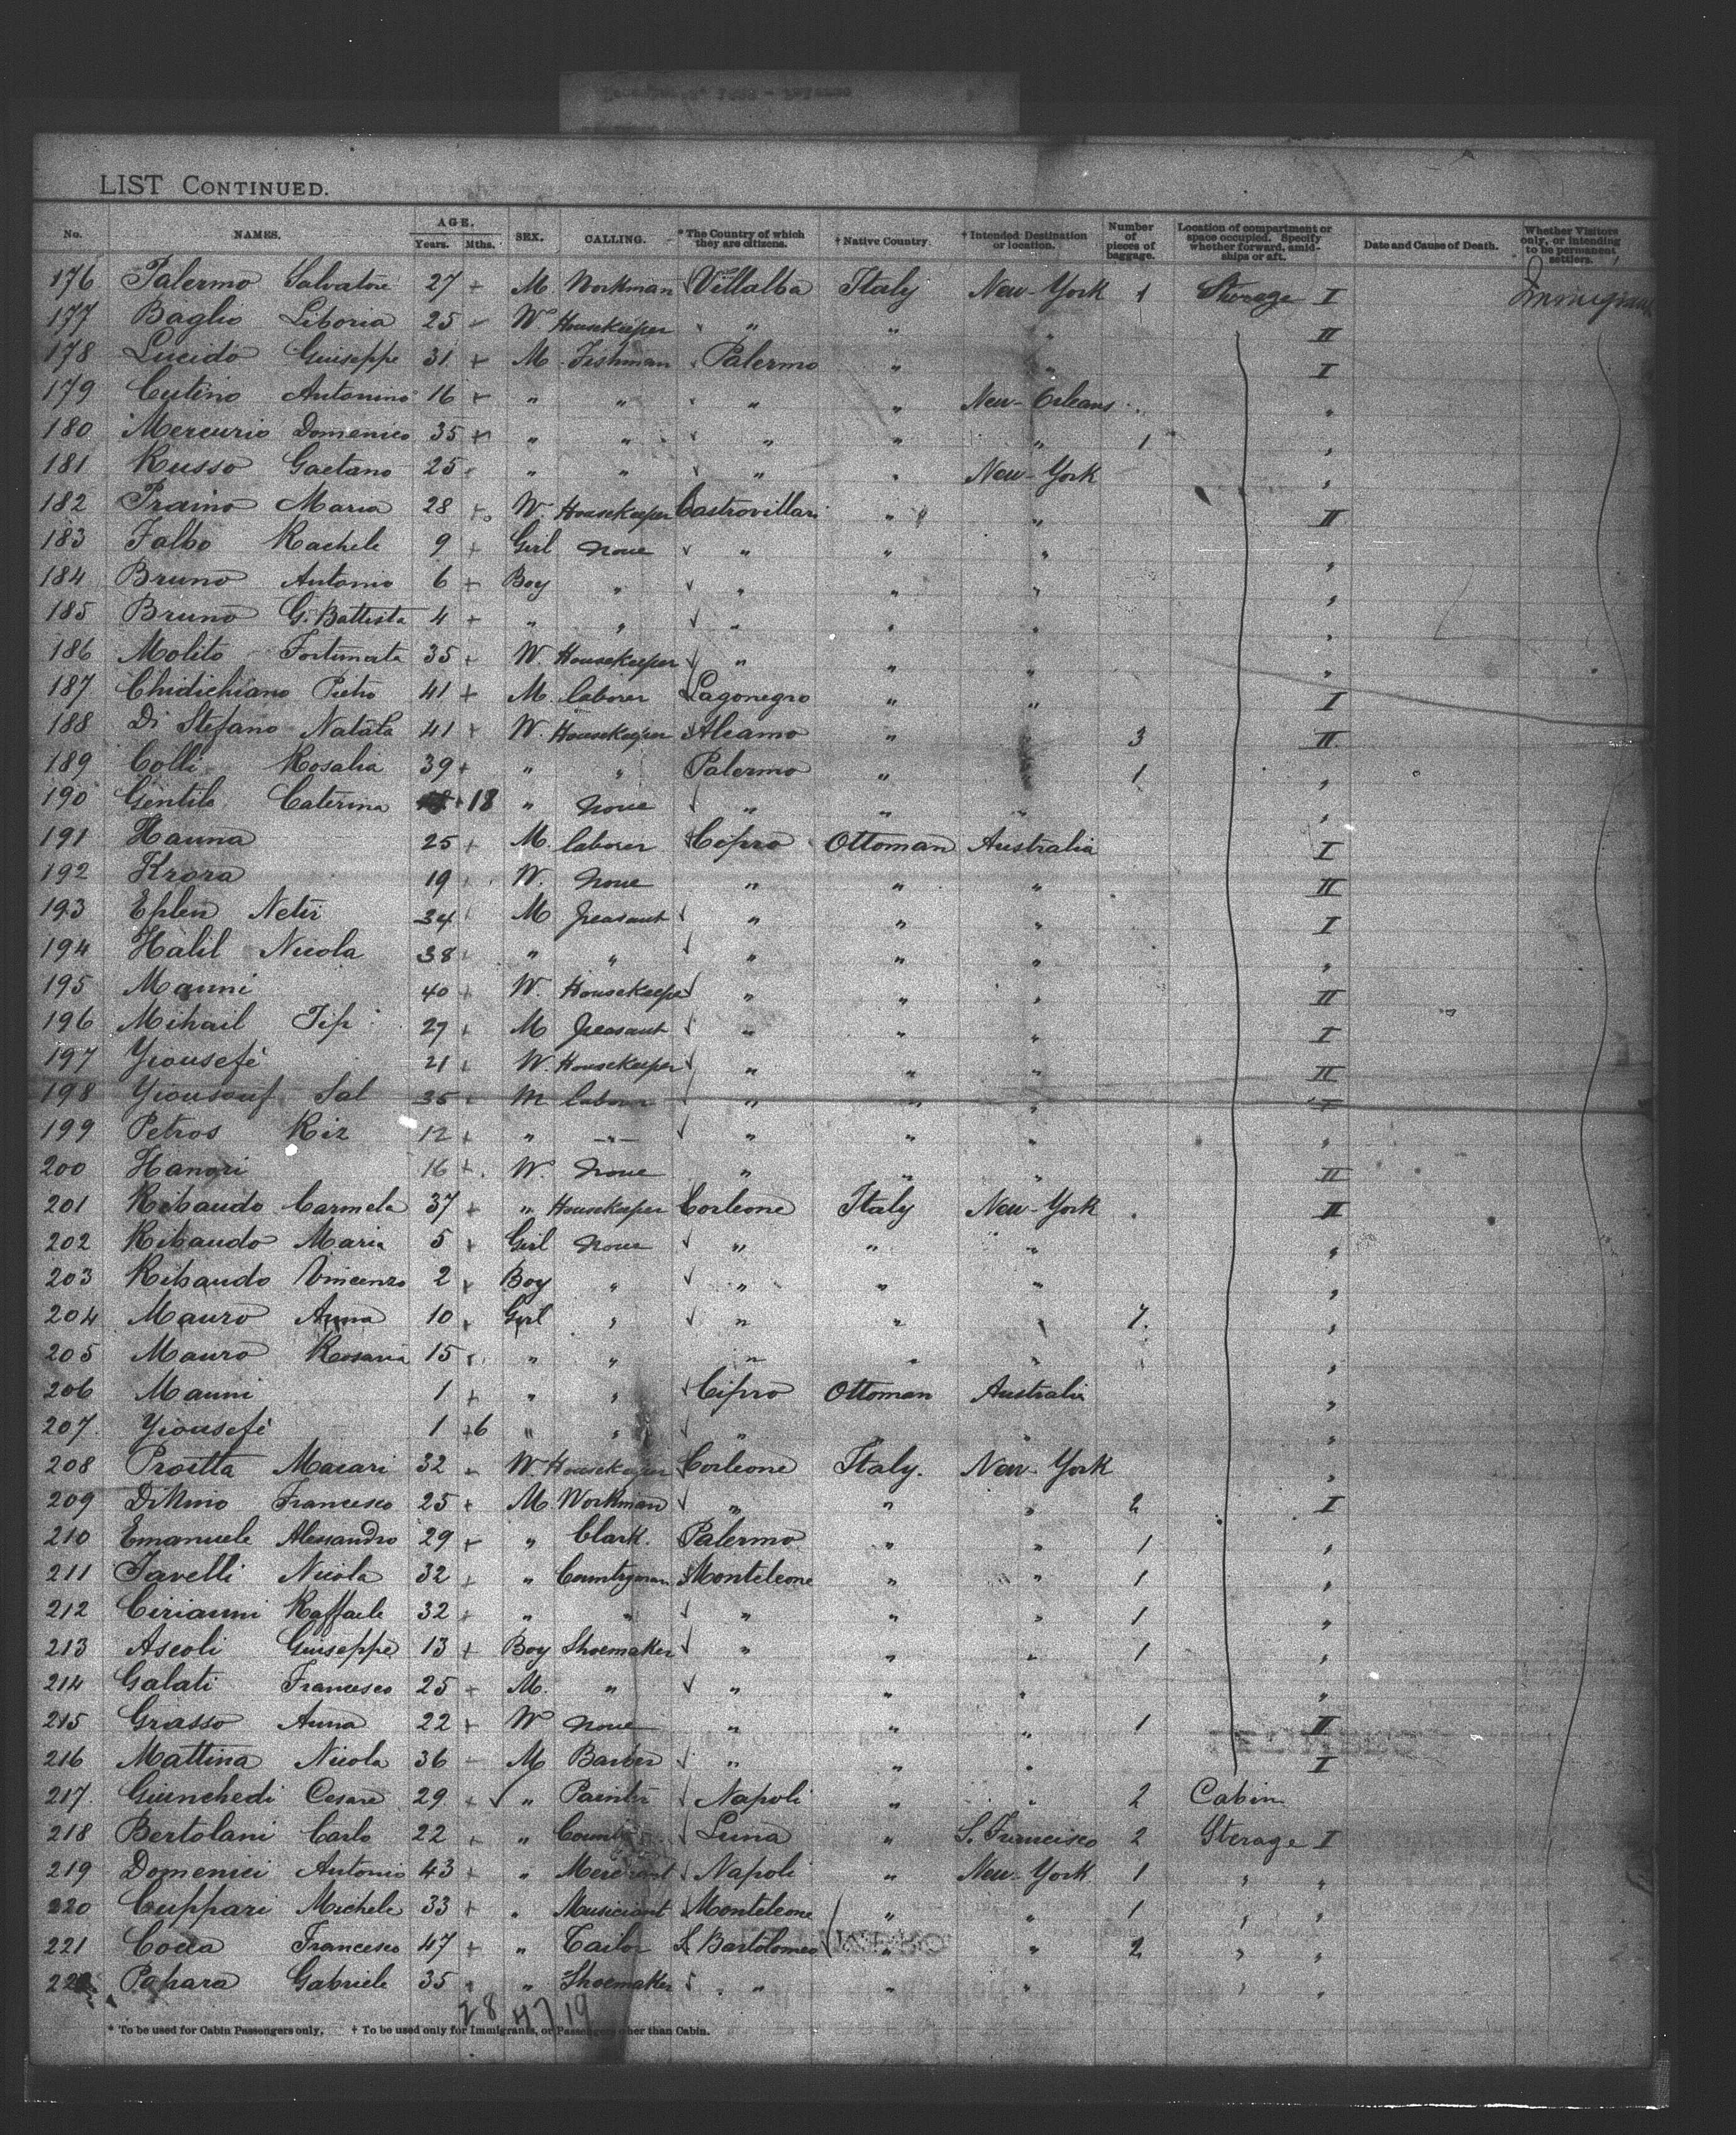 LIST CONTINUED.
No. NAMES. AGE. Years. Mths. SEX. CALLING. * The Country of which they are citizens. † Native Country. † Intended Destination or location. Number of pieces of baggage. Location of compartment or space occupied. Specify whether forward, amidships or aft. Date and Cause of Death. Whether Visitors only, or intending to be permanent settlers.
176 Palermo Salvatore 27 + M. Workman Villalba Italy New-York 1 Sterage I
177 Baglio Liboria 25 W. Housekeeper " " " II
178 Lucido Giuseppe 31 + M. Fishman Palermo " " I
179 Cutino Antonino 16 + " " " " New-Orleans "
180 Mercurio Domenico 35 + " " " " " 1 "
181 Russo Gaetano 25 " " " " New-York "
182 Praino Maria 28 + W. Housekeeper Castrovillari " " II
183 Falbo Rachele 9 + Girl None " " " "
184 Bruno Antonio 6 + Boy " " " " "
185 Bruno G. Battista 4 + " " " " " "
186 Molito Fortunata 35 + W. Housekeeper " " " "
187 Chidichiano Pietro 41 + M. laborer Lagonegro " " I
188 Di Stefano Natala 41 + W. Housekeeper Alcamo " " 3 II
189 Colli Rosalia 39 + " " Palermo " 1 "
190 Gentile Caterina 18 " None " " " "
191 Hanna 25 + M. laborer Cipro Ottoman Australia I
192 Krora 19 W. None " " " II
193 Eplen Netir 34 M peasant " " " I
194 Halil Nicola 38 " " " " " "
195 Manni 40 + W. Housekeeper " " " II
196 Mihail Tip 27 + M peasant " " " I
197 Yiousefé 21 + W. Housekeeper " " " II
198 Yiousouf Sal 35 M labour " " " I
199 Petros Kir 12 + " " " " " "
200 Hanori 16 + W. None " " " II
201 Ribaudo Carmela 37 + " Housekeeper Corleone Italy New-York II
202 Ribaudo Maria 5 + Girl None " " " "
203 Ribaudo Vincenzo 2 + Boy " " " " "
204 Mauro Anna 10 + Girl " " " " 7. "
205 Mauro Rosaria 15 " " " " " "
206 Manni 1 + " " Cipro Ottoman Australia "
207. Yiousefé 1 6 " " " " "
208 Proitta Macari 32 W. Housekeeper Corleone Italy. New-York "
209 DiNino Francesco 25 + M. Workman " " " 2 I
210 Emanuele Alessandro 29 + " Clark. Palermo " " 1 "
211 Javelli Nicola 32 + " Countryman Monteleone " " 1 "
212 Cirianni Raffaele 32 + " " " " " 1 "
213 Ascoli Giuseppe 13 + Boy Shoemaker " " " 1 "
214 Galati Francesco 25 + M. " " " " "
215 Grasso Anna 22 + W None " " " 1 II
216 Mattina Nicola 36 M Barber " " " I
217. Giunchedi Cesare 29 + " Painter Napoli " " 2 Cabin
218 Bertolani Carlo 22 + " Luna " S. Francisco 2 Sterage I
219 Domenici Antonio 43 + " Merchant Napoli " New-York. 1 " "
220 Cuppari Michele 33 + " Musiciant Monteleone " " 1 " "
221 Cocca Francesco 47 + " Tailor S. Bartolomeo " " 2 " "
222 Papara Gabriele 35 " Shoemaker " " " " "
28 47 19
* To be used for Cabin Passengers only. † To be used only for Immigrants, or Passengers other than Cabin.